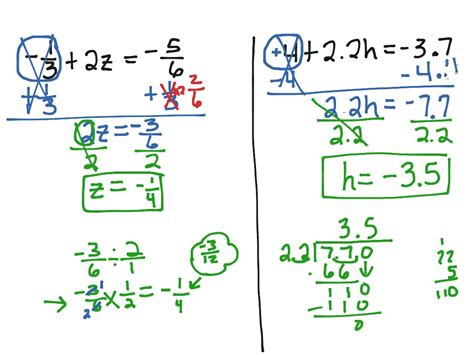 -1/3 + 2z = -5/6
+1/3 +1/3 2/6
2z = -3/6
2 2
z = -1/4
-3/6 ÷ 2/1
-3/12
→ -3/6 × 1/2 = -1/4
2 1
+4 + 2.2h = -3.7
-4 -4.
2.2h = -7.7
2.2 2.2
h = -3.5
3.5
2.2 7.7.0
- 66
110
- 110
0
1
22
5
110